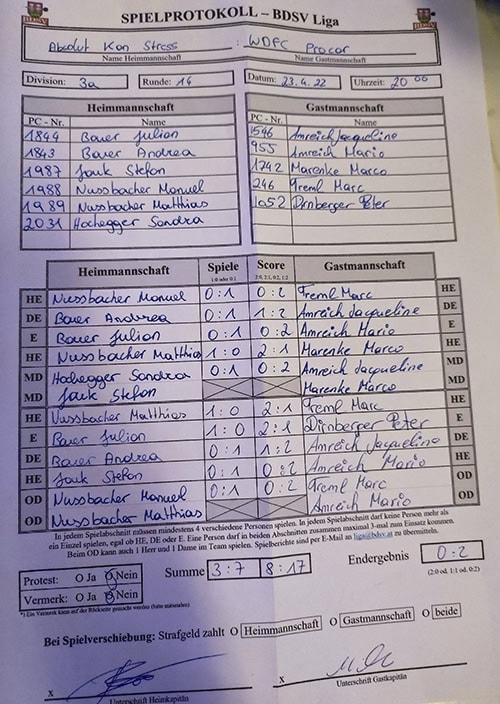 SPIELPROTOKOLL – BDSV Liga
Absolut Kon Stress : WDFC Procor
Name Heimmannschaft Name Gastmannschaft
Division: 3a Runde: 14 Datum: 23.4.22 Uhrzeit: 20 00
Heimmannschaft Gastmannschaft
PC - Nr. Name PC - Nr. Name
1844 Bauer Julian 1546 Amreich Jacqueline
1843 Bauer Andrea 955 Amreich Mario
1987 Jauk Stefan 1742 Marenke Marco
1988 Nussbacher Manuel 246 Freml Marc
1989 Nussbacher Matthias 1052 Dirnberger Peter
2031 Hochegger Sandra
Heimmannschaft Spiele Score Gastmannschaft
1:0 oder 0:1 2:0, 2:1, 0:2, 1:2
HE Nussbacher Manuel 0:1 0:2 Freml Marc HE
DE Bauer Andrea 0:1 1:2 Amreich Jacqueline DE
E Bauer Julian 0:1 0:2 Amreich Mario E
HE Nussbacher Matthias 1:0 2:1 Marenke Marco HE
MD Hochegger Sandra 0:1 0:2 Amreich Jacqueline MD
MD Jauk Stefan Marenke Marco MD
HE Nussbacher Matthias 1:0 2:1 Freml Marc HE
E Bauer Julian 1:0 2:1 Dirnberger Peter E
DE Bauer Andrea 0:1 1:2 Amreich Jacqueline DE
HE Jauk Stefan 0:1 0:2 Amreich Mario HE
OD Nussbacher Manuel 0:1 0:2 Freml Marc OD
OD Nussbacher Matthias Amreich Mario OD
In jedem Spielabschnitt müssen mindestens 4 verschiedene Personen spielen. In jedem Spielabschnitt darf keine Person mehr als
ein Einzel spielen, egal ob HE, DE oder E. Eine Person darf in beiden Abschnitten zusammen maximal 3-mal zum Einsatz kommen.
Beim OD kann auch 1 Herr und 1 Dame im Team spielen. Spielberichte sind per E-Mail an liga@bdsv.at zu übermitteln.
Protest: O Ja O Nein Summe 3:7 8:17 Endergebnis 0:2
Vermerk: O Ja O Nein (2:0 od. 1:1 od. 0:2)
*) Ein Vermerk kann auf der Rückseite gemacht werden
Bei Spielverschiebung: Strafgeld zahlt O Heimmannschaft O Gastmannschaft O beide
x x
Unterschrift Heimkapitän Unterschrift Gastkapitän